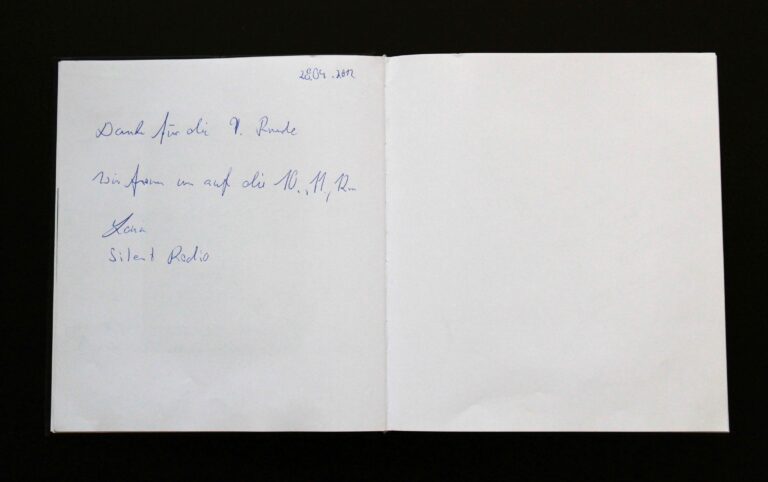 28.04.2012
Dank für die 9. Runde
Wir freuen uns auf die 10., 11., 12...
Silent Radio